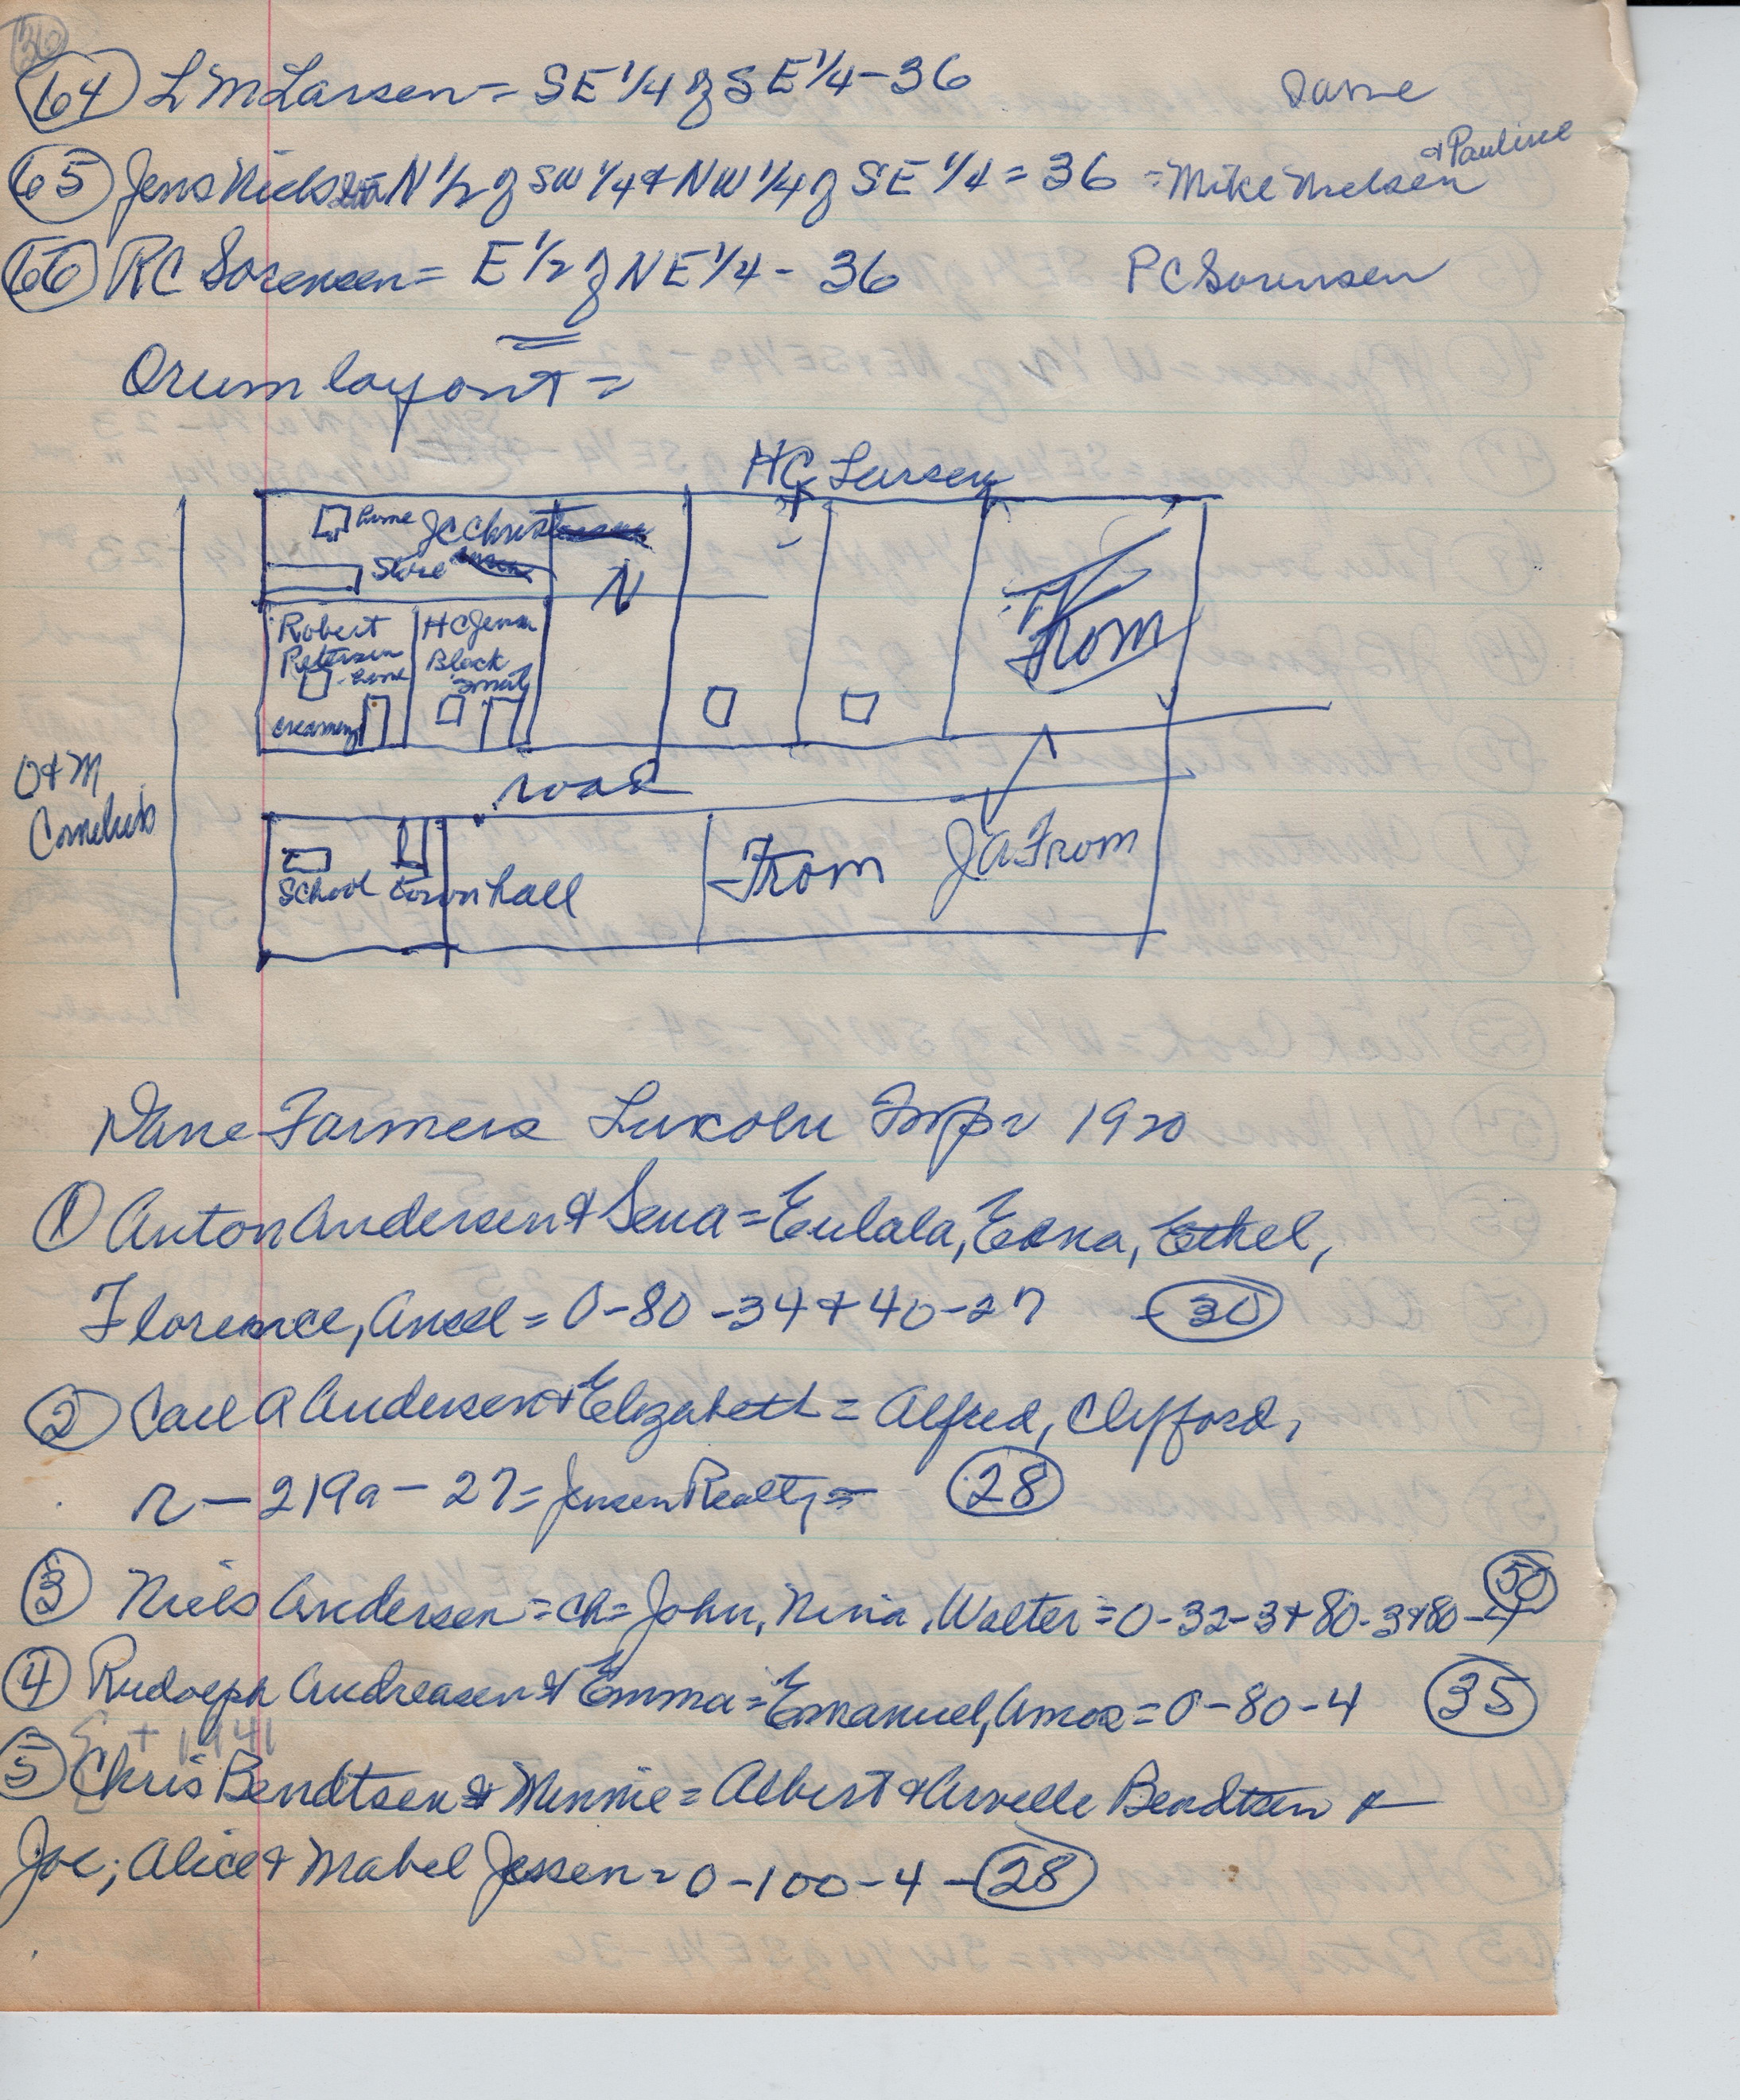 36
64 L M Larsen = SE 1/4 of SE 1/4 - 36 Same
65 Jens Nielsen N 1/2 of SW 1/4 & NW 1/4 of SE 1/4 = 36 = Mike Nielsen & Pauline
66 RC Sorensen = E 1/2 of NE 1/4 - 36 PC Sorensen
Orum layout =
HC Larsen
home JC Christensen
Store
N
Robert Petersen home
creamery
HC Jensen Black smith
From
road
O & M
School town hall
From JA From
Dane Farmers Lincoln Twp 1920
1 Anton Andersen & Sena = Eulala, Edna, Ethel,
Florence, Ansel = 0-80-34 + 40-27 30
2 Carl A Andersen & Elizabeth = Alfred, Clifford,
r - 219a - 27 = Jensen Realty = 28
3 Niels Andersen = ch = John, Nina, Walter = 0-32-3 + 80-3 + 80-4 50
4 Rudolph Andreasen & Emma = Emanuel, Amos = 0-80-4 35
+ 1941
5 Chris Bendtsen & Minnie = Albert & Arvelle Bendtsen &
Joe, Alice & Mabel Jessen = 0-100-4 - 28